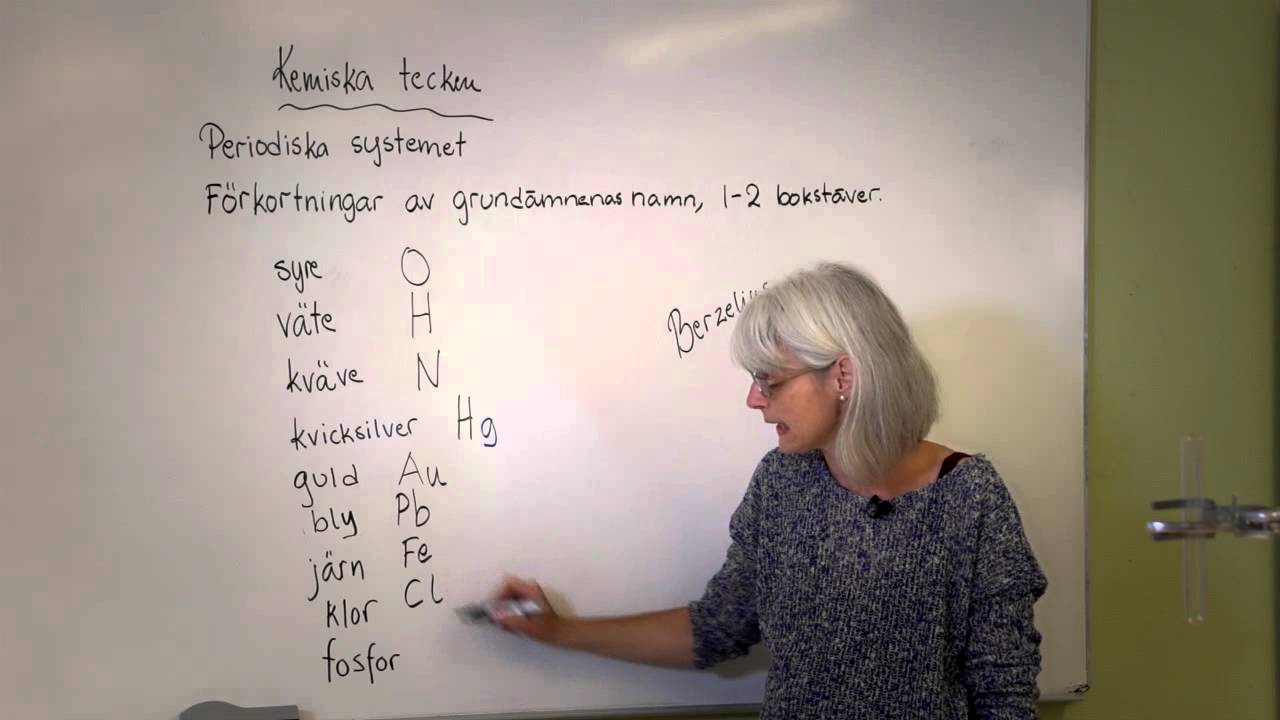 Kemiska tecken
Periodiska systemet
Förkortningar av grundämnenas namn, 1-2 bokstäver.
syre O
väte H
kväve N
kvicksilver Hg
guld Au
bly Pb
järn Fe
klor Cl
fosfor
Berzelius